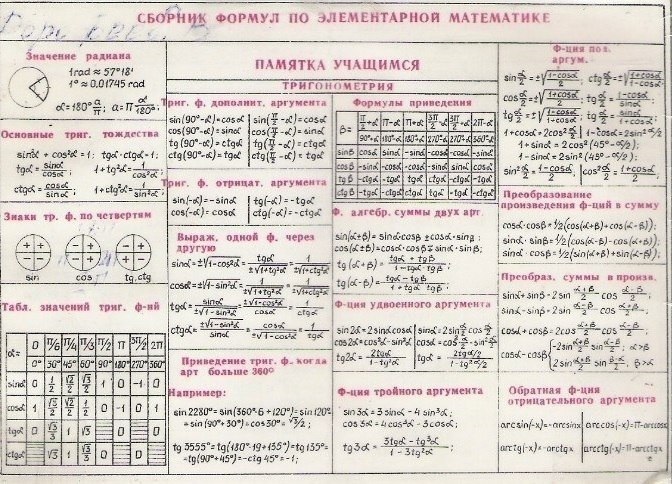 СБОРНИК ФОРМУЛ ПО ЭЛЕМЕНТАРНОЙ МАТЕМАТИКЕ
ПАМЯТКА УЧАЩИМСЯ
ТРИГОНОМЕТРИЯ
Значение радиана
1 rad ≈ 57°18'
1° ≈ 0,01745 rad
α=180° a/π; a=π α/180°;
Основные триг. тождества
sin²α + cos²α = 1; tgα·ctgα=1;
tgα = sinα/cosα; 1+tg²α = 1/cos²α;
ctgα = cosα/sinα; 1+ctg²α = 1/sin²α;
Знаки тр. ф. по четвертям
+ + - + - +
- - - + + -
sin cos tg, ctg
Табл. значений триг. ф-ий
α= 0 π/6 π/4 π/3 π/2 π 3π/2 2π
0° 30° 45° 60° 90° 180° 270° 360°
sinα 0 1/2 √2/2 √3/2 1 0 -1 0
cosα 1 √3/2 √2/2 1/2 0 -1 0 1
tgα 0 √3/3 1 √3 0 0
ctgα √3 1 √3/3 0 0
Триг. ф. дополнит. аргумента
sin(90°-α)=cosα sin(π/2-α)=cosα
cos(90°-α)=sinα cos(π/2-α)=sinα
tg(90°-α)=ctgα tg(π/2-α)=ctgα
ctg(90°-α)=tgα ctg(π/2-α)=tgα
Триг. ф. отрицат. аргумента
sin(-α)=-sinα tg(-α)=-tgα
cos(-α)=cosα; ctg(-α)=-ctgα;
Выраж. одной ф. через
другую
sinα=±√1-cos²α = tgα/±√1+tg²α = 1/±√1+ctg²α
cosα=±√1-sin²α = 1/±√1+tg²α = ctgα/±√1+ctg²α
tgα = sinα/±√1-sin²α = ±√1-cos²α/cosα = 1/ctgα
ctgα = ±√1-sin²α/sinα = cosα/±√1-cos²α = 1/tgα
Приведение триг. ф. когда
арг больше 360°
Например:
sin 2280°=sin(360°·6+120°)=sin 120°
=sin(90°+30°)=cos30°=√3/2;
tg 3555°=tg(180°·19+135°)=tg 135°=
=tg(90°+45°)=-ctg 45°=-1;
Формулы приведения
β= π/2+α π-α π+α 3π/2-α 3π/2+α 2π-α
90°+α 180°-α 180°+α 270°-α 270°+α 360°-α
sinβ cosα sinα -sinα -cosα -cosα -sinα
cosβ -sinα -cosα -cosα -sinα sinα cosα
tgβ -ctgα -tgα tgα ctgα -ctgα -tgα
ctgβ -tgα -ctgα ctgα tgα -tgα -ctgα
Ф. алгебр. суммы двух арг.
sin(α±β)=sinα·cosβ ± cosα·sinβ;
cos(α±β)=cosα·cosβ∓sinα·sinβ;
tg(α+β)= tgα + tgβ/1-tgα·tgβ;
tg(α-β)= tgα-tgβ/1+tgα·tgβ;
Ф-ция удвоенного аргумента
sin2α=2sinα·cosα; sinα=2sin α/2 cos α/2
cos2α=cos²α-sin²α; cosα=cos² α/2-sin² α/2
tg2α= 2tgα/1-tg²α; tgα= 2tgα/2/1-tg²α/2
Ф-ция тройного аргумента
sin 3α=3 sinα-4 sin³α;
cos3α=4 cos³α-3 cosα;
tg 3α = 3tgα-tg³α/1-3tg²α
Ф-ция пол.
аргум.
sin α/2=±√1-cosα/2; ctg α/2=±√1+cosα/1-cosα
cos α/2=±√1+cosα/2; tg α/2= 1-cosα/sinα
tg α/2=±√1-cosα/1+cosα; tg α/2= sinα/1+cosα
1+cosα=2cos² α/2 1-cosα=2sin² α/2
1+sinα=2cos²(45°-α/2);
1-sinα=2sin²(45°-α/2);
sin² α/2= 1-cosα/2 cos² α/2= 1+cosα/2
Преобразование
произведения ф-ций в сумму
cosα·cosβ=½(cos(α+β)+cos(α-β));
sinα·sinβ=½(cos(α-β)-cos(α+β));
sinα·cosβ=½(sin(α+β)+sin(α-β));
Преобраз. суммы в произв.
sinα+sinβ=2sin α+β/2 cos α-β/2;
sinα-sinβ=2sin α-β/2 cos α+β/2;
cosα+cosβ=2cos α+β/2 cos α-β/2;
cosα-cosβ{-2sin α+β/2 sin α-β/2, α>β
2sin α+β/2 sin β-α/2, β>α
Обратная ф-ция
отрицательного аргумента
arcsin(-x)=-arcsinx arccos(-x)=π-arccosx
arctg(-x)=-arctgx arcctg(-x)=π-arcctgx